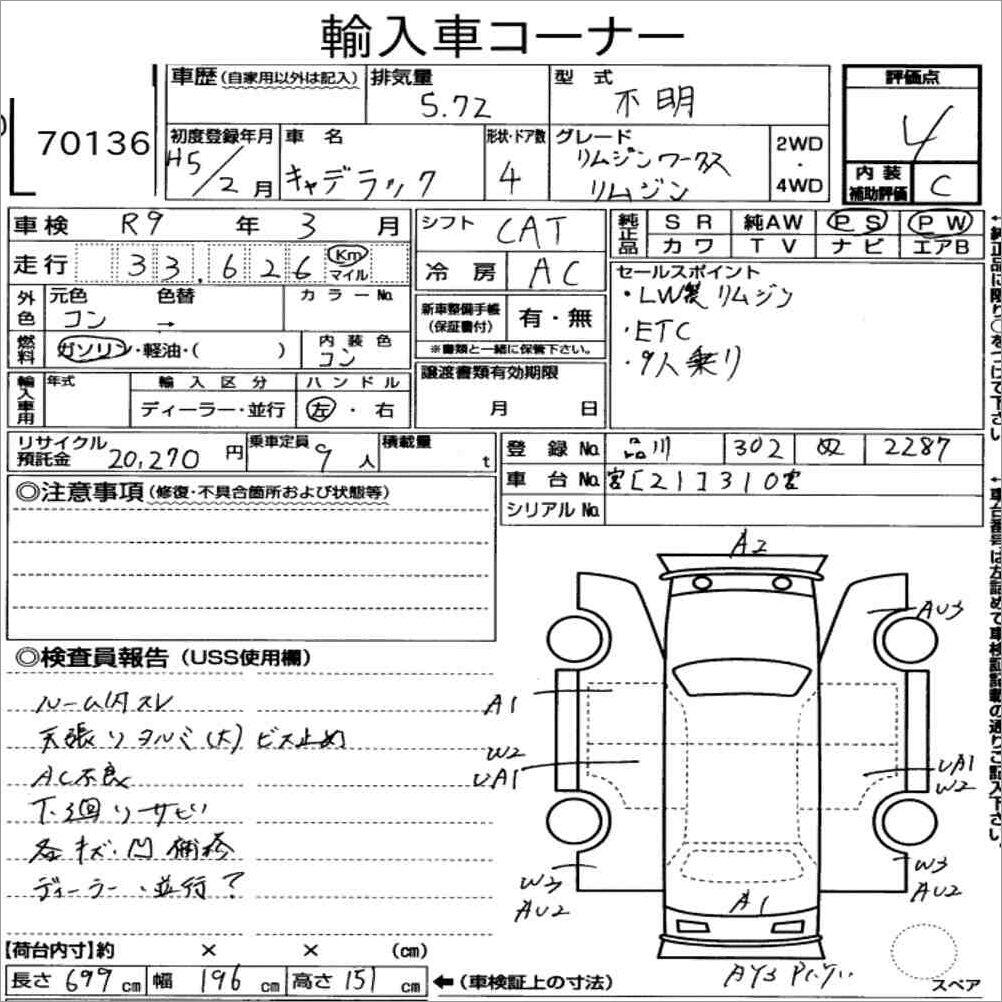 輸入車コーナー
70136
車歴(自家用以外は記入)
排気量 5.72
型式 不明
評価点 4
初度登録年月 H5/2月
車名 キャデラック
形状・ドア数 4
グレード リムジンワークス リムジン
2WD・4WD
内装補助評価 C
車検 R9年3月
シフト CAT
純正品 SR 純AW PS PW
カワ TV ナビ エアB
走行 33,626 Km マイル
冷房 AC
セールスポイント
・LW製リムジン
・ETC
・9人乗り
外色 元色 コン 色替 → カラーNo.
新車整備手帳(保証書付) 有・無
※書類と一緒に保管下さい。
燃料 ガソリン・軽油・( ) 内装色 コン
譲渡書類有効期限 月 日
輸入車用 年式 輸入区分 ディーラー・並行 ハンドル 左・右
リサイクル預託金 20,270円 乗車定員 9人 積載量 t
登録No. 品川 302 ぬ 2287
車台No. 宮[21]310宮
シリアルNo.
◎注意事項(修復・不具合箇所および状態等)
◎検査員報告(USS使用欄)
ルーム内スレ
天張りタルミ(大)ビス止め
AC不良
下廻りサビ
各キズ・凹 補修
ディーラー・並行?
A2
AU3
A1
W2
UA1
UA1
W2
W3
AU2
W3
AU2
A1
AY3
スペア
【荷台内寸】約 × × (cm)
長さ 699cm 幅 196cm 高さ 151cm ←(車検証上の寸法)
↑純正品に限り○をつけて下さい。
↑車台番号は左詰めで車検証記載の通りご記入下さい。